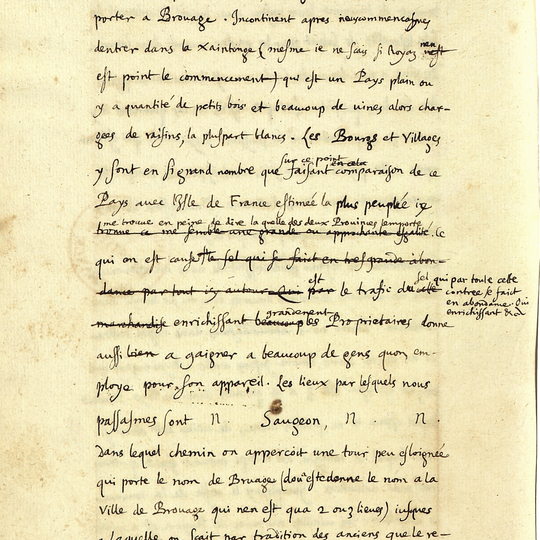 porter a Brouage. Incontinent apres nous commencasmes
dentrer dans la Xaintonge (mesme ie ne scais si Royaz nen
est point le commencement) qui est un Pays plain ou
y a quantité de petits bois et beaucoup de vines alors char-
gées de raisins, la pluspart blancs. Les Bourgs et Villages
sur ce point
y sont en si grand nombre que faisant comparaison de ce
Pays avec l'Isle de France estimée la plus peuplée ie
me trouue en peine de dire laquelle des deux Prouinces l'emporte.
trouue ce me semble une grande ou approchante esgalité. Ce
qui on est cause le sel qui se faict en tres grande abon-
dance par tout icy autour Qui est par le trafic du sel qui par toute ceste
contree se faict
en abondance. Qui
enrichissant &a
marchandise enrichissant grandement beaucoup les Proprietaires donne
aussi bien a gaigner a beaucoup de gens quon em-
ploye pour son appareil. Les lieux par lesquels nous
passasmes sont N. Saugeon, N. N.
Dans lequel chemin on apperçoit une tour peu esloignée
qui porte le nom de Bruage (dou est donne le nom a la
Ville de Brouage qui nen est qua 2 ou 3 lieues) iusques
a laquelle on scait par tradition des anciens que le re-